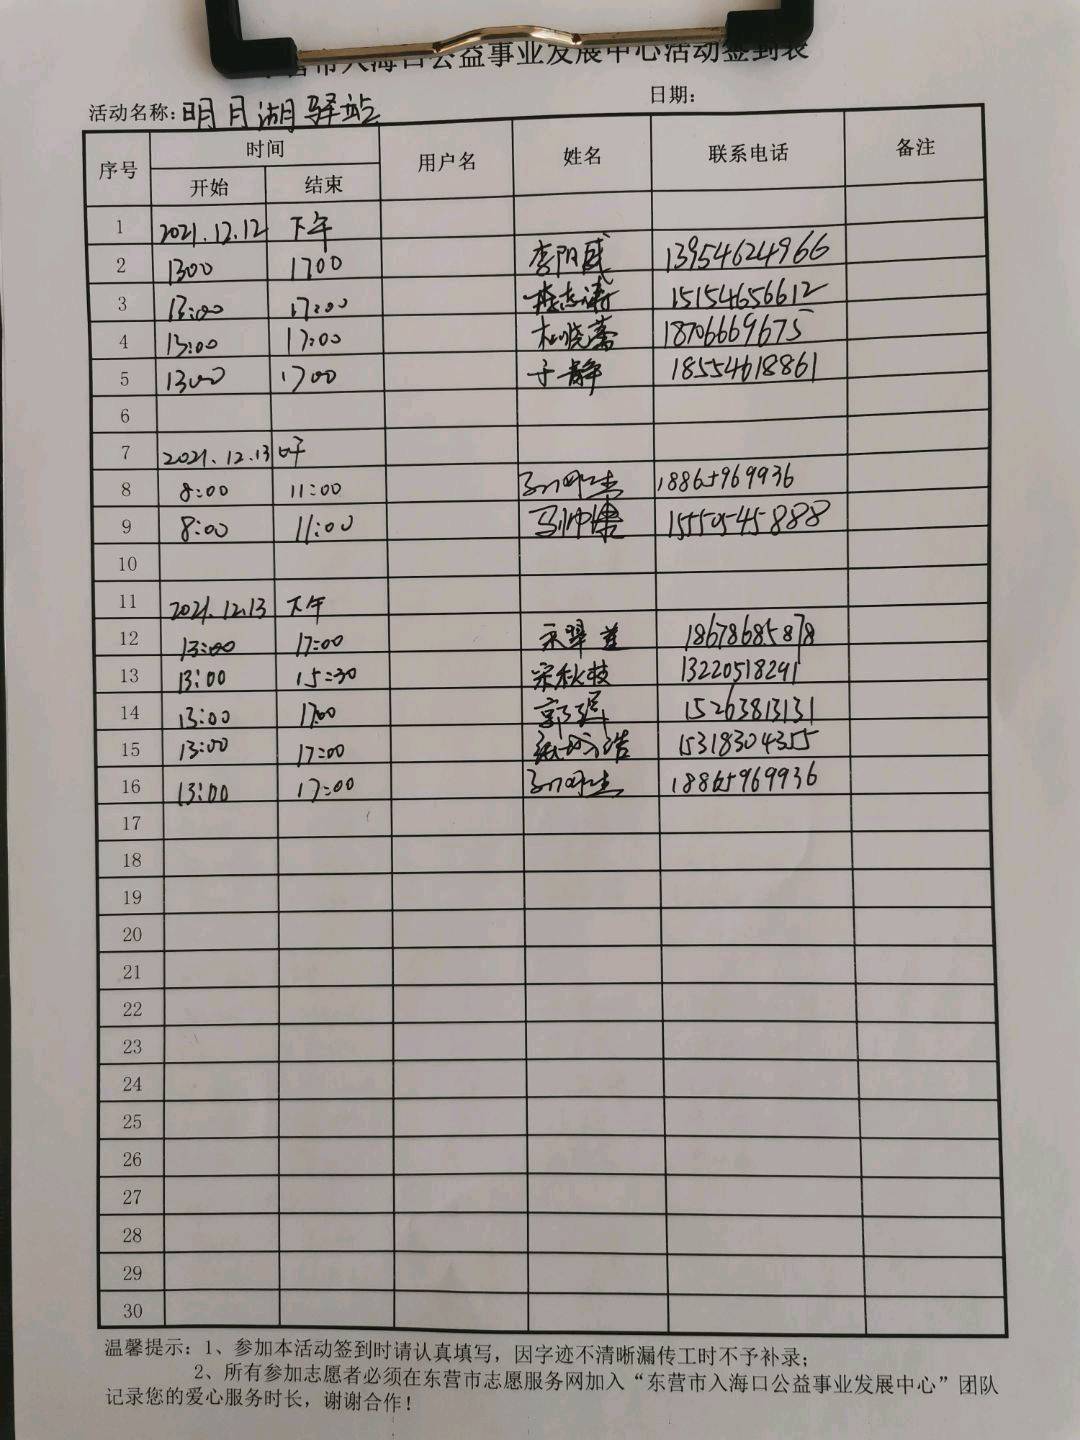 东营市入海口公益事业发展中心活动签到表
活动名称:明月湖驿站 日期:
序号 时间 用户名 姓名 联系电话 备注
开始 结束
1 2021.12.12 下午
2 1300 1700 李阳威 13954624966
3 13:00 17:00 15154656612
4 13:00 17:00 杜晓蕾 18706669675
5 1300 1700 于静 18554618861
6
7 2021.12.13
8 8:00 11:00 18865969936
9 8:00 11:00 15550545888
10
11 2021.12.13 下午
12 13:00 17:00 18678685878
13 13:00 15:30 宋秋枝 13220518291
14 13:00 17:00 郭强 15263813131
15 13:00 17:00 15318304355
16 13:00 17:00 18865969936
17
18
19
20
21
22
23
24
25
26
27
28
29
30
温馨提示:1、参加本活动签到时请认真填写,因字迹不清晰漏传工时不予补录;
2、所有参加志愿者必须在东营市志愿服务网加入“东营市入海口公益事业发展中心”团队
记录您的爱心服务时长,谢谢合作!